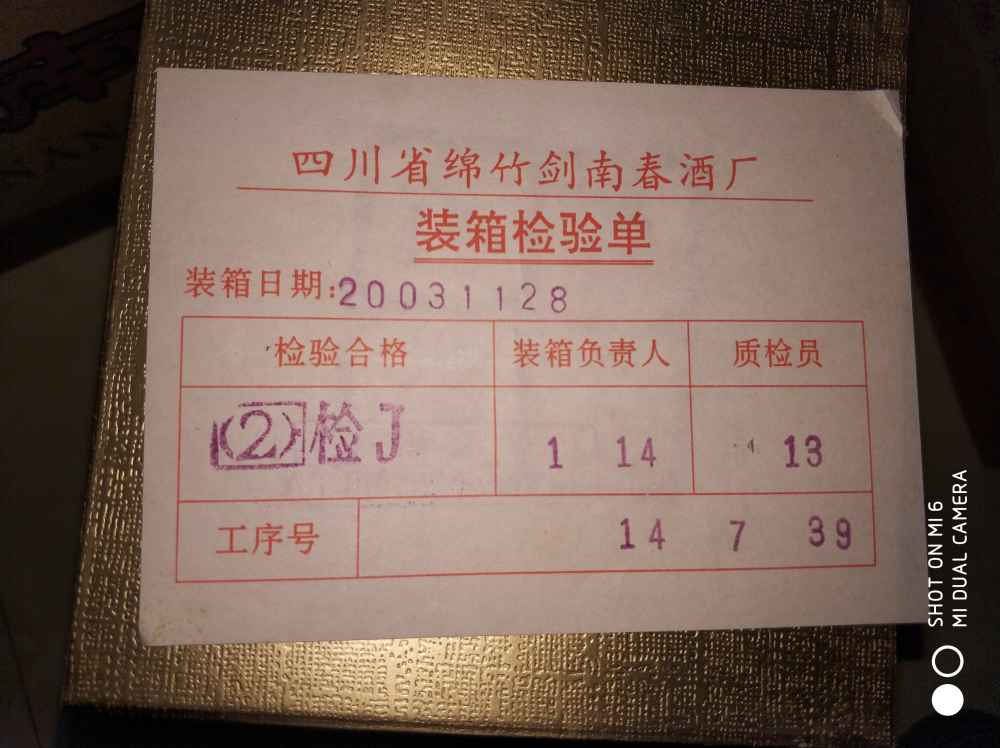 四川省绵竹剑南春酒厂
装箱检验单
装箱日期:20031128
检验合格 装箱负责人 质检员
(2)检J 1 14 4 13
工序号 14 7 39
SHOT ON MI 6
MI DUAL CAMERA